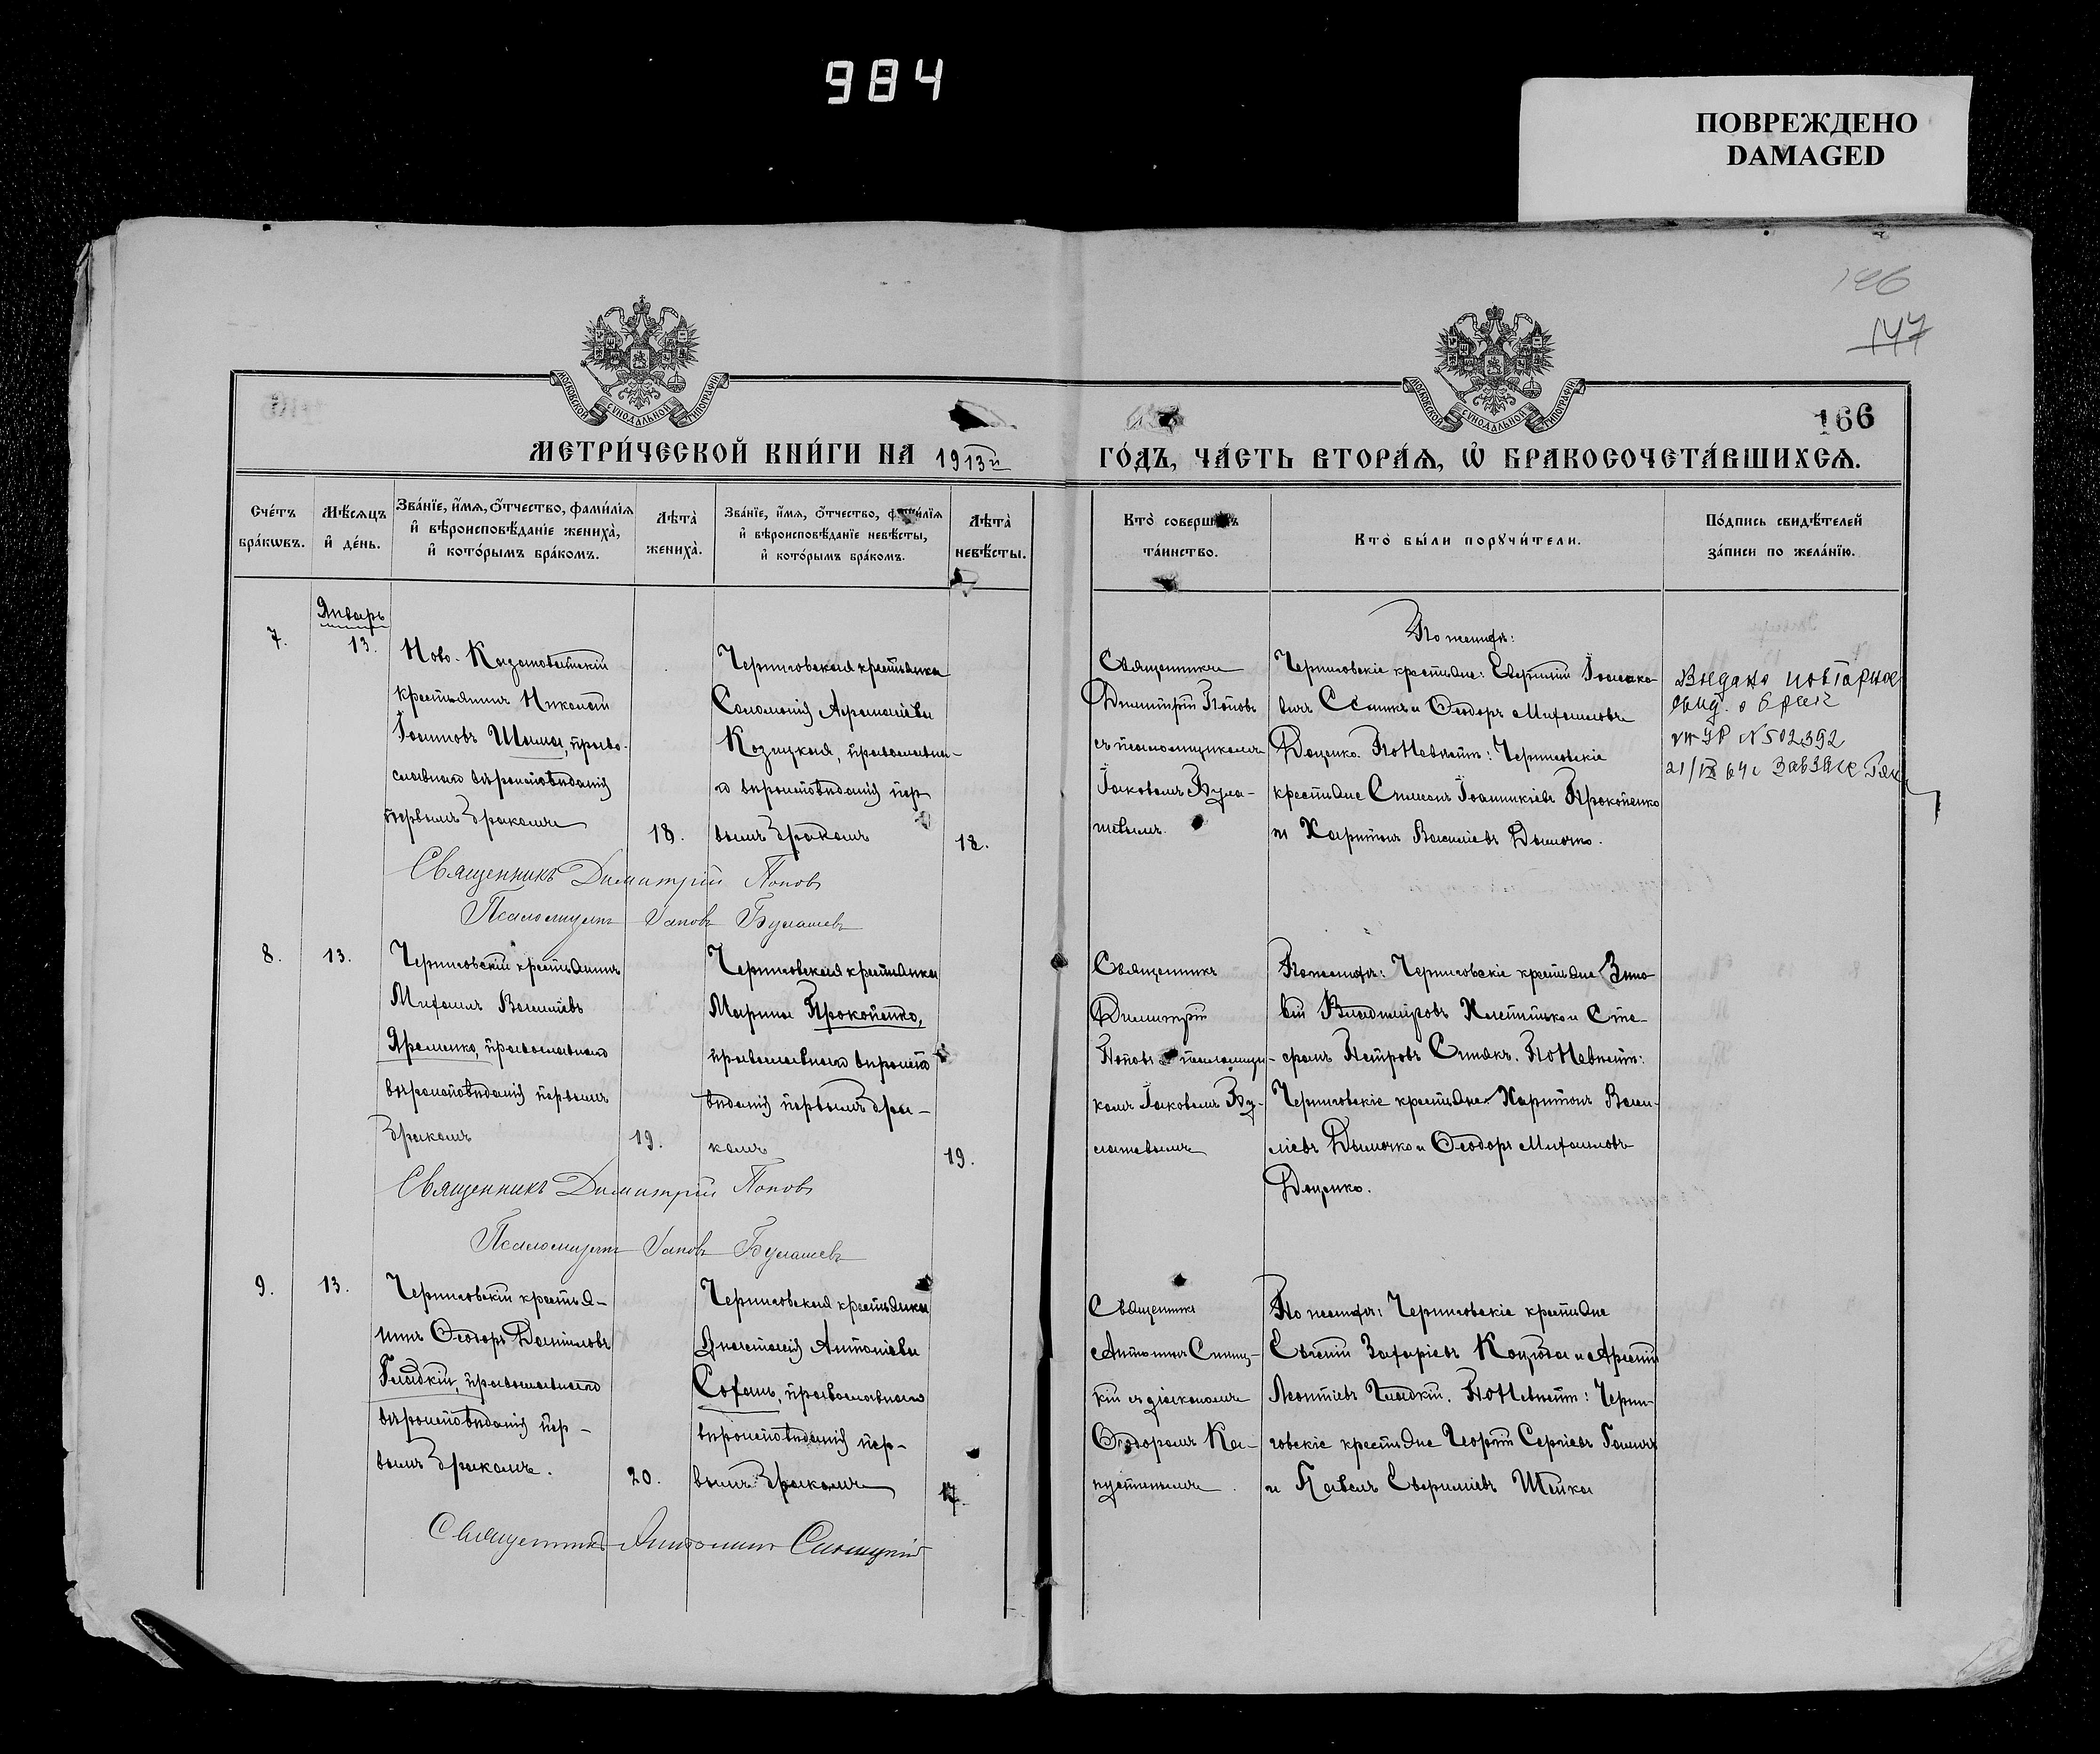 984
ПОВРЕЖДЕНО
DAMAGED
146
147
166
МОСКОВСКОЙ СѴНОДАЛЬНОЙ ТИПОГРАФІИ
МОСКОВСКОЙ СѴНОДАЛЬНОЙ ТИПОГРАФІИ
МЕТРИ́ЧЕСКОЙ КНИ́ГИ НА 1913й ГО́ДЪ, ЧА́СТЬ ВТОРА́Ѧ, Ѡ҆ БРАКОСОЧЕТА́ВШИХСѦ.
Сче́тъ бра́кѡвъ.
Мѣ́сѧцъ и҆ де́нь.
Зва́нїе, и҆́мѧ, ѻ҆́тчество, фами́лїѧ
и҆ вѣроисповѣ́данїе жениха̀,
и҆ кото́рымъ бра́комъ.
Лѣта̀ жениха̀.
Зва́нїе, и҆́мѧ, ѻ҆́тчество, фами́лїѧ
и҆ вѣроисповѣ́данїе невѣ́сты,
и҆ кото́рымъ бра́комъ.
Лѣта̀ невѣ́сты.
Кто̀ соверша́лъ
та́инство.
Кто̀ бы́ли порꙋчи́тели.
По́дпись свидѣ́телей
за́писи по жела́нїю.
7.
Январь
13.
Ново-Казановатскій
крестьянинъ Николай
Іоанновъ Шама, право-
славнаго вѣроисповѣданія
первымъ бракомъ
18.
Черниговская крестьянка
Соломонія Афанасіева
Козицкая, православна-
го вѣроисповѣданія пер
вымъ бракомъ
18.
Священникъ
Димитрій Поповъ
съ псаломщикомъ
Іаковомъ Була-
шевымъ.
По женихѣ:
Черниговскіе крестьяне:
и Ѳеодоръ Михаиловъ
Доценко. По невѣстѣ: Черниговскіе
крестьяне Симеонъ Іоанникіевъ Прокопенко
и Харитонъ Василіевъ Дымочко.
Видано повторное
свид. о браке
УР N 502392
21/IX 64 г Зав ЗАГС
Священникъ Димитрій Поповъ
Псаломщикъ Іаковъ Булашевъ
8.
13.
Черниговскій крестьянинъ
Михаилъ Василіевъ
Яременко, православнаго
вѣроисповѣданія первымъ
бракомъ
19.
Черниговская крестьянка
Марина Прокопенко,
православнаго вѣроиспо
вѣданія первымъ бра-
комъ
19.
Священникъ
Димитрій
Поповъ съ псаломщи-
комъ Іаковомъ Бу-
лашевымъ
По женихѣ: Черниговскіе крестьяне Зино-
вій Владиміровъ и Сте-
фанъ Петровъ Синякъ. По невѣстѣ:
Черниговскіе крестьяне Харитонъ Васи-
ліевъ Дымочко и Ѳеодоръ Михаиловъ
Доценко.
Священникъ Димитрій Поповъ
Псаломщикъ Іаковъ Булашевъ
9.
13.
Черниговскій крестья-
нинъ Ѳеодоръ Даніиловъ
Гладкій, православнаго
вѣроисповѣданія пер-
вымъ бракомъ.
20.
Черниговская крестьянка
Анастасія Антоніева
Сохань, православнаго
вѣроисповѣданія пер-
вымъ бракомъ
17.
Священникъ
Антоній Синиц-
кій съ діакономъ
Ѳеодоромъ Ка-
пустинымъ.
По женихѣ: Черниговскіе крестьяне
Евсевій Захаріевъ и Арсеній
Леонтіевъ Гладкій. По невѣстѣ: Черни-
говскіе крестьяне Георгій Сергіевъ
и Павелъ Ефиміевъ Шейка
Священникъ Антоній Синицкій